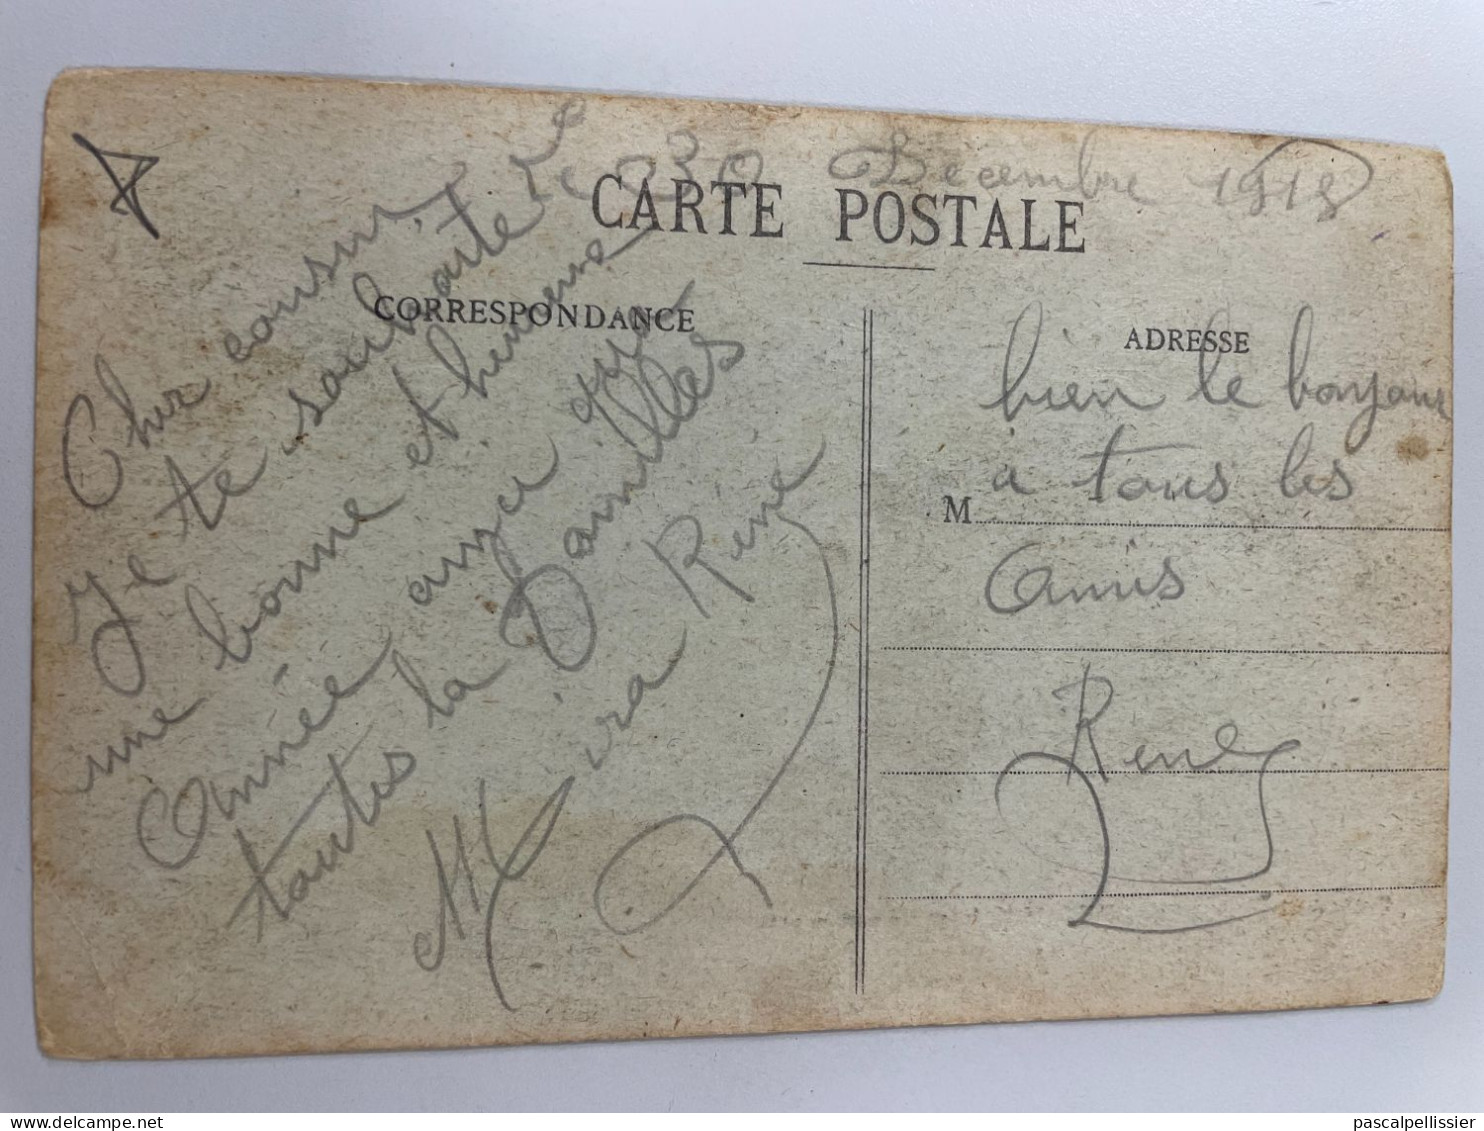 Le 30 Décembre 1918
CARTE POSTALE
CORRESPONDANCE
ADRESSE
Cher cousin
Je te souhaite
une bonne et heureuse
Année
toutes la familles
Mira René
bien le bonjour
M
à tous les
Amis
René
pascalpellissier